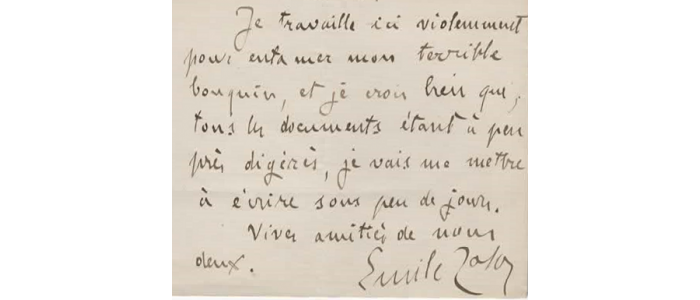 Je travaille ici violemment
pour entamer mon terrible
bouquin, et je crois bien que,
tous les documents étant à peu
près digérés, je vais me mettre
à écrire sous peu de jours.
Vives amitiés de nous
deux.
Emile Zola